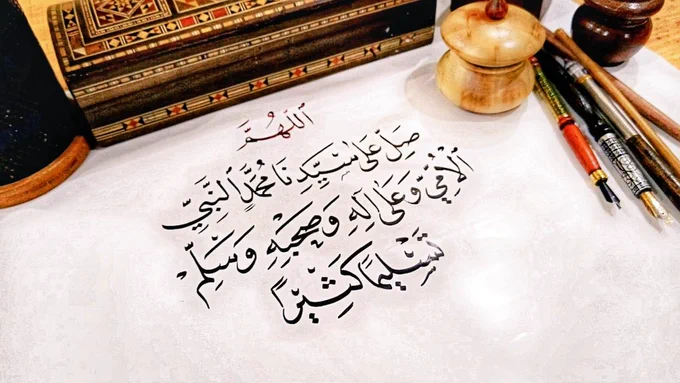 اللّٰهُمَّ
صَلِّ عَلَى سَيِّدِنَا مُحَمَّدٍ النَّبِيِّ
الْأُمِّيِّ وَعَلَى آلِهِ وَصَحْبِهِ وَسَلِّمْ
تَسْلِيمًا كَثِيرًا